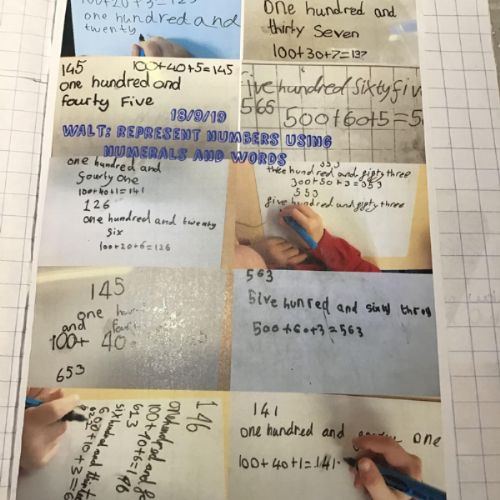 100+20+3=123
one hundred and
twenty
one hundred and
thirty Seven
100+30+7=137
145 100+40+5=145
one hundred and
fourty Five
five hundred sixty five
565
500+60+5=5
18/9/19
WALT: REPRESENT NUMBERS USING
NUMERALS AND WORDS
one hundred and
fourty one
100+40+1=141
126
one hundred and twenty
six
100+20+6=126
353
three hundred and fifty three
300+50+3=353
553
five hundred and fifty three
145
one
and
100+ 40
653
563
five hunred and sixty three
500+60+3=563
146
one hundred and
100+40+6=146
613
six hundred and
141
one hundred and one
100+40+1=141